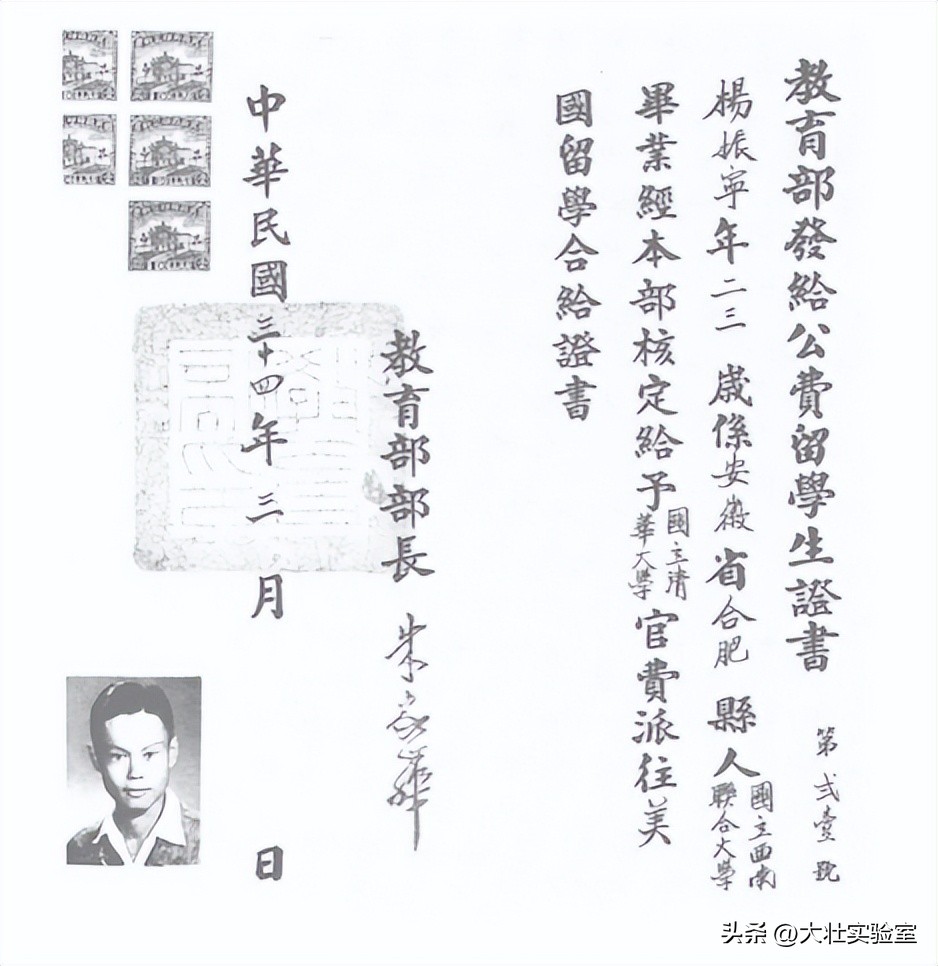 教育部發給公費留學生證書
第弍壹號
楊振寧年二三歲係安徽省合肥縣人國立西南聯合大學
畢業經本部核定給予國立清華大學官費派往美
國留學合給證書
教育部部長朱家驊
中華民國三十四年三月 日
头条 @大壮实验室